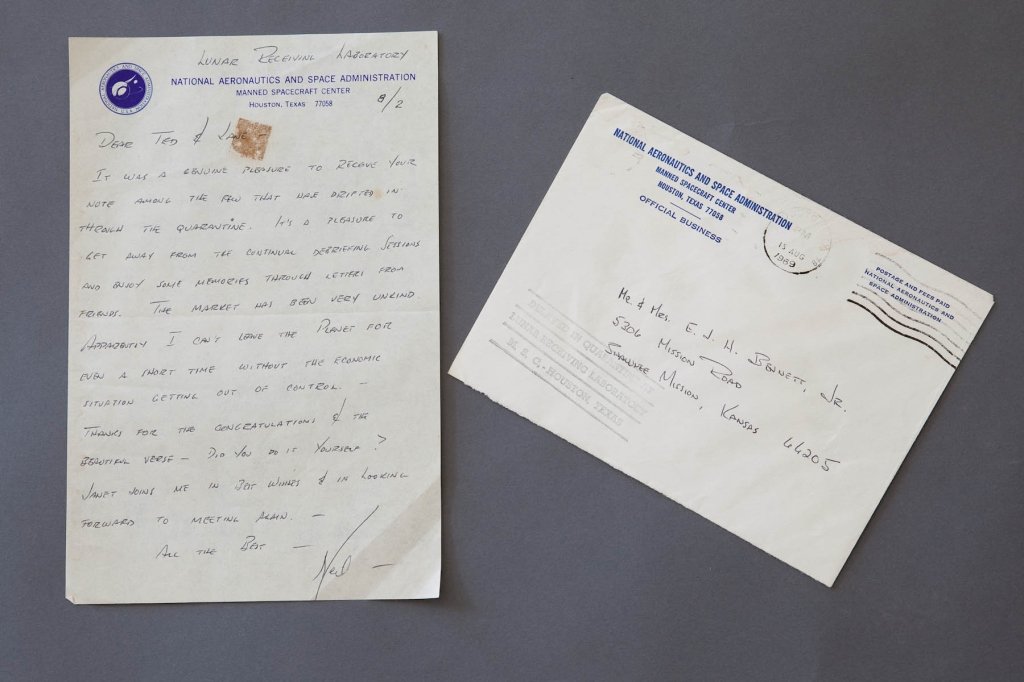 LUNAR RECEIVING LABORATORY
NATIONAL AERONAUTICS AND SPACE ADMINISTRATION
MANNED SPACECRAFT CENTER
HOUSTON, TEXAS 77058
8/2
DEAR TED & JANE —
IT WAS A GENUINE PLEASURE TO RECEIVE YOUR
NOTE AMONG THE FEW THAT HAVE DRIFTED IN
THROUGH THE QUARANTINE. IT'S A PLEASURE TO
GET AWAY FROM THE CONTINUAL DEBRIEFING SESSIONS
AND ENJOY SOME MEMORIES THROUGH LETTERS FROM
FRIENDS. THE MARKET HAS BEEN VERY UNKIND.
APPARENTLY I CAN'T LEAVE THE PLANET FOR
EVEN A SHORT TIME WITHOUT THE ECONOMIC
SITUATION GETTING OUT OF CONTROL. —
THANKS FOR THE CONGRATULATIONS & THE
BEAUTIFUL VERSE — DID YOU DO IT YOURSELF?
JANET JOINS ME IN BEST WISHES & IN LOOKING
FORWARD TO MEETING AGAIN. —
ALL THE BEST —
Neil —
NATIONAL AERONAUTICS AND SPACE ADMINISTRATION
MANNED SPACECRAFT CENTER
HOUSTON, TEXAS 77058
OFFICIAL BUSINESS
PM
15 AUG
1969
POSTAGE AND FEES PAID
NATIONAL AERONAUTICS AND
SPACE ADMINISTRATION
MR. & MRS. E. J. H. BENNETT, JR.
5306 MISSION ROAD
SHAWNEE MISSION, KANSAS 66205
IN QUARANTINE AT
LUNAR RECEIVING LABORATORY
M. S. C., HOUSTON, TEXAS